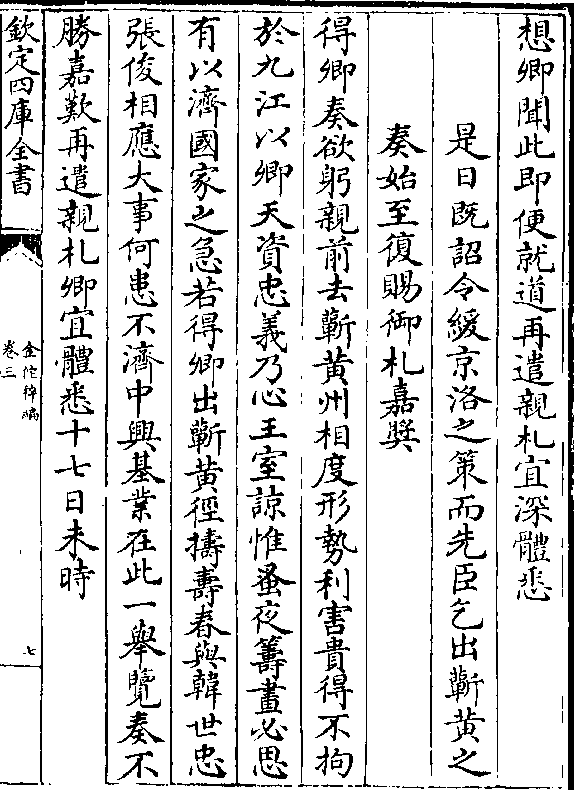 想卿聞此即便就道再遣親札宜深體悉
是日既詔令緩京洛之策而先臣乞出蘄黄之
奏始至復賜御札嘉奬
得卿奏欲躬親前去蘄黄州相度形勢利害貴得不拘
於九江以卿天資忠義乃心王室諒惟蚤夜籌畫必思
有以濟國家之急若得卿出蘄黄徑擣壽春與韓世忠
張俊相應大事何患不濟中興基業在此一舉覽奏不
勝嘉歎再遣親札卿宜體悉十七日未時
欽定四庫全書
金佗稡編
卷三
七